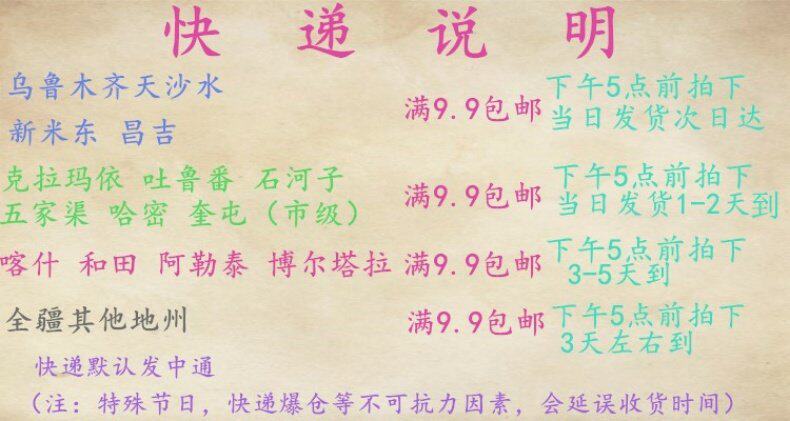 快递说明
乌鲁木齐天沙水
新米东 昌吉
满9.9包邮
下午5点前拍下
当日发货次日达
克拉玛依 吐鲁番 石河子
五家渠 哈密 奎屯（市级）
满9.9包邮
下午5点前拍下
当日发货1-2天到
喀什 和田 阿勒泰 博尔塔拉
满9.9包邮
下午5点前拍下
3-5天到
全疆其他地州
满9.9包邮
下午5点前拍下
3天左右到
快递默认发中通
（注：特殊节日，快递爆仓等不可抗力因素，会延误收货时间）